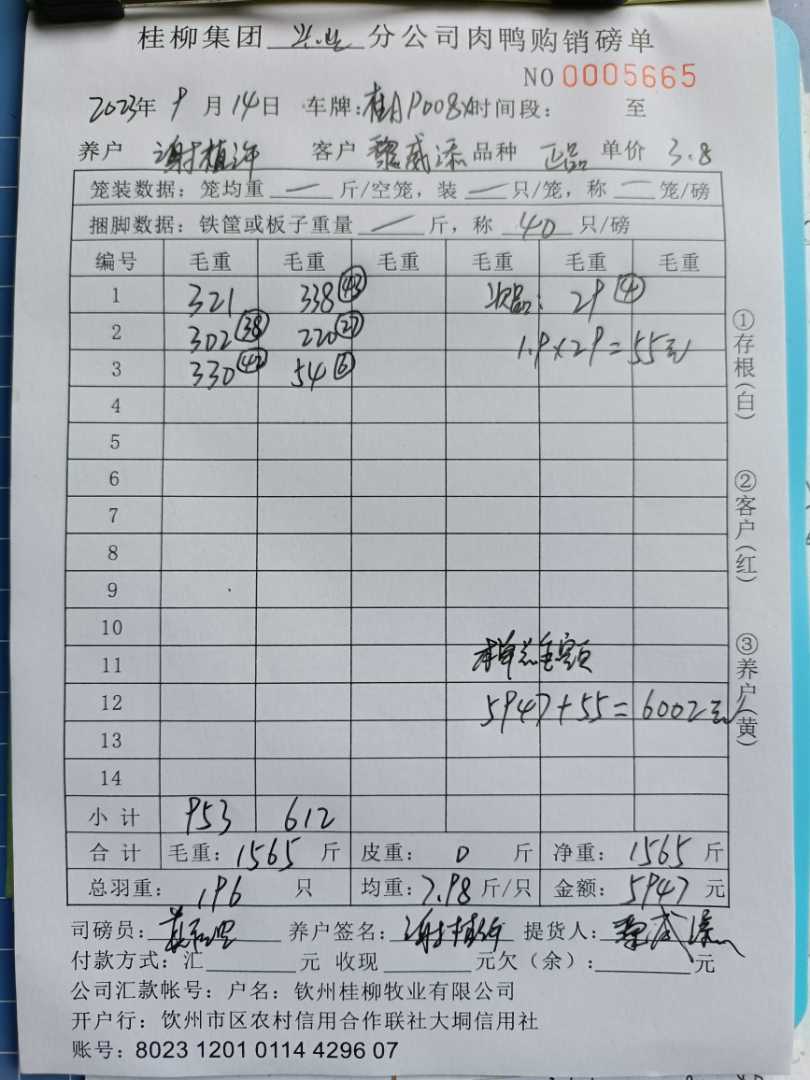 桂柳集团 分公司肉鸭购销磅单
NO 0005665
2023年 9 月 14日 车牌:桂AP008X时间段: 至
养户 谢植许 客户 黎威添 品种 正品 单价 3.8
笼装数据:笼均重 一 斤/空笼,装 一 只/笼,称 一 笼/磅
捆脚数据:铁筐或板子重量 一 斤,称 40 只/磅
编号 毛重 毛重 毛重 毛重 毛重 毛重
1 321 338 43 次品: 29 4
2 302 38 220 27 1.9×29=55元
3 330 42 54 6
4
5
6
7
8
9
10
11 本单总金额
12 5947+55=6002元
13
14
小计 953 612
合计 毛重:1565 斤 皮重: 0 斤 净重: 1565 斤
总羽重: 196 只 均重:7.98 斤/只 金额: 5947 元
司磅员: 养户签名: 谢植许 提货人: 黎威添
付款方式:汇 元 收现 元欠(余): 元
公司汇款帐号:户名:钦州桂柳牧业有限公司
开户行:饮州市区农村信用合作联社大垌信用社
账号:8023 1201 0114 4296 07
①存根(白)
②客户(红)
③养户(黄)